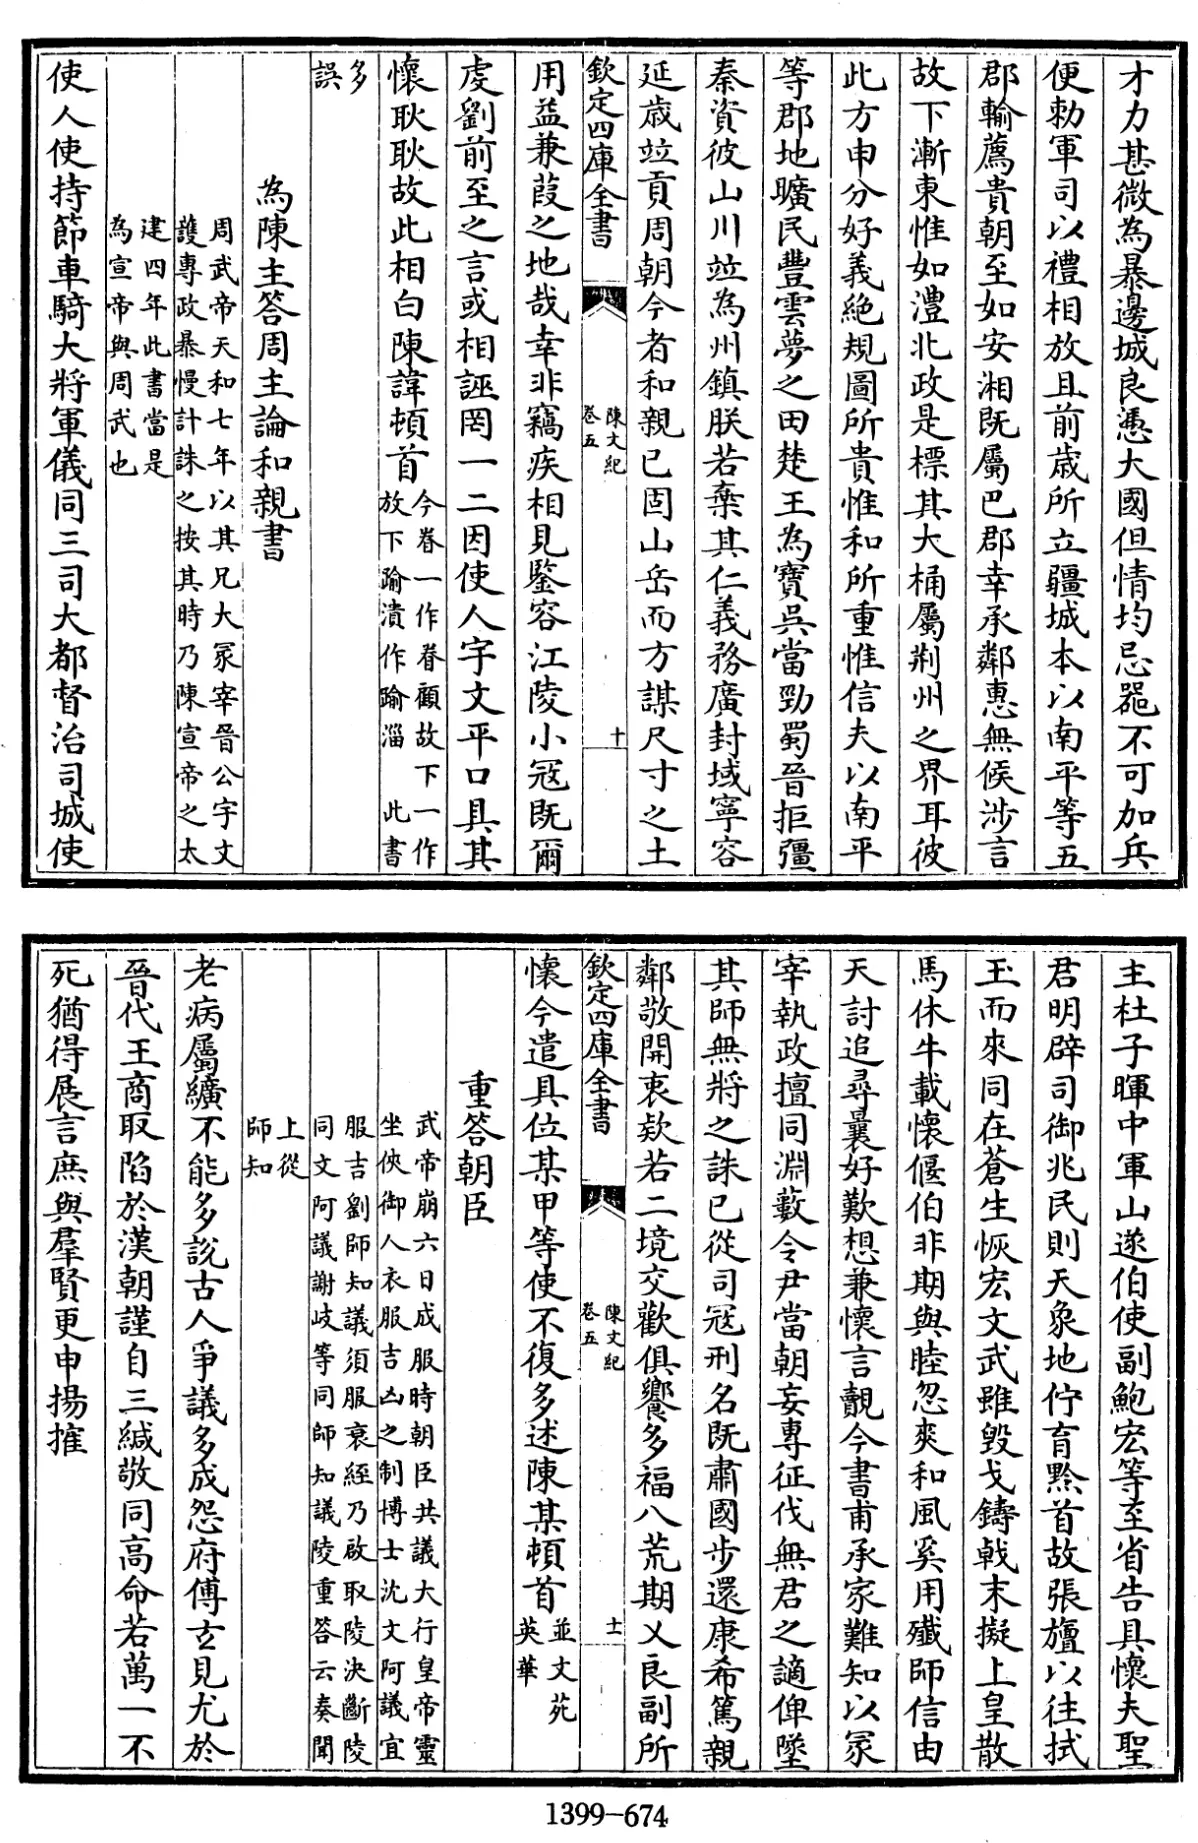 才力甚微為暴邊城良憑大國但情均忌器不可加兵
便勅軍司以禮相放且前歲所立疆城本以南平等五
郡輸薦貴朝至如安湘既屬巴郡幸承鄰惠無俟涉言
故下漸東惟如澧北政是標其大桶屬荆州之界耳彼
此方申分好義絶規圖所貴惟和所重惟信夫以南平
等郡地曠民豐雲夢之田楚王為寳吳當勁蜀晉拒彊
秦資彼山川竝為州鎮朕若棄其仁義務廣封域寧容
延歲竝貢周朝今者和親已固山岳而方謀尺寸之土
欽定四庫全書
陳文紀
卷五
十
用益兼葭之地哉幸非竊疾相見鑒容江陵小冦既爾
虔劉前至之言或相誣罔一二因使人宇文平口具其
懷耿耿故此相白陳諱頓首
今眷一作眷顧故下一作
放下踰潰作踰淄 此書
多
誤
為陳主答周主論和親書
周武帝天和七年以其兄大冢宰晉公宇文
護專政暴慢計誅之按其時乃陳宣帝之太
建四年此書當是
為宣帝與周武也
使人使持節車騎大將軍儀同三司大都督治司城使
主杜子暉中軍山遂伯使副鮑宏等至省告具懷夫聖
君明辟司御兆民則天象地佇育黔首故張旜以往拭
玉而來同在蒼生恢宏文武雖毀戈鑄戟末擬上皇散
馬休牛載懷偃伯非期與睦忽爽和風奚用殲師信由
天討追尋曩好歎想兼懷言覿今書甫承家難知以冢
宰執政擅同淵藪令尹當朝妄專征伐無君之謫俾墜
其師無將之誅已從司冦刑名既肅國步還康希篤親
鄰敬開衷欵若二境交歡俱饗多福八荒期乂良副所
欽定四庫全書
陳文紀
卷五
十一
懷今遣具位某甲等使不復多述陳某頓首
並文苑
英華
重答朝臣
武帝崩六日成服時朝臣共議大行皇帝靈
坐俠御人衣服吉凶之制博士沈文阿議宜
服吉劉師知議須服衰絰乃啟取陵決斷陵
同文阿議謝岐等同師知議陵重答云奏聞
上從
師知
老病屬纊不能多説古人爭議多成怨府傅玄見尤於
晉代王商取陷於漢朝謹自三緘敬同高命若萬一不
死猶得展言庶與羣賢更申揚搉
1399-674